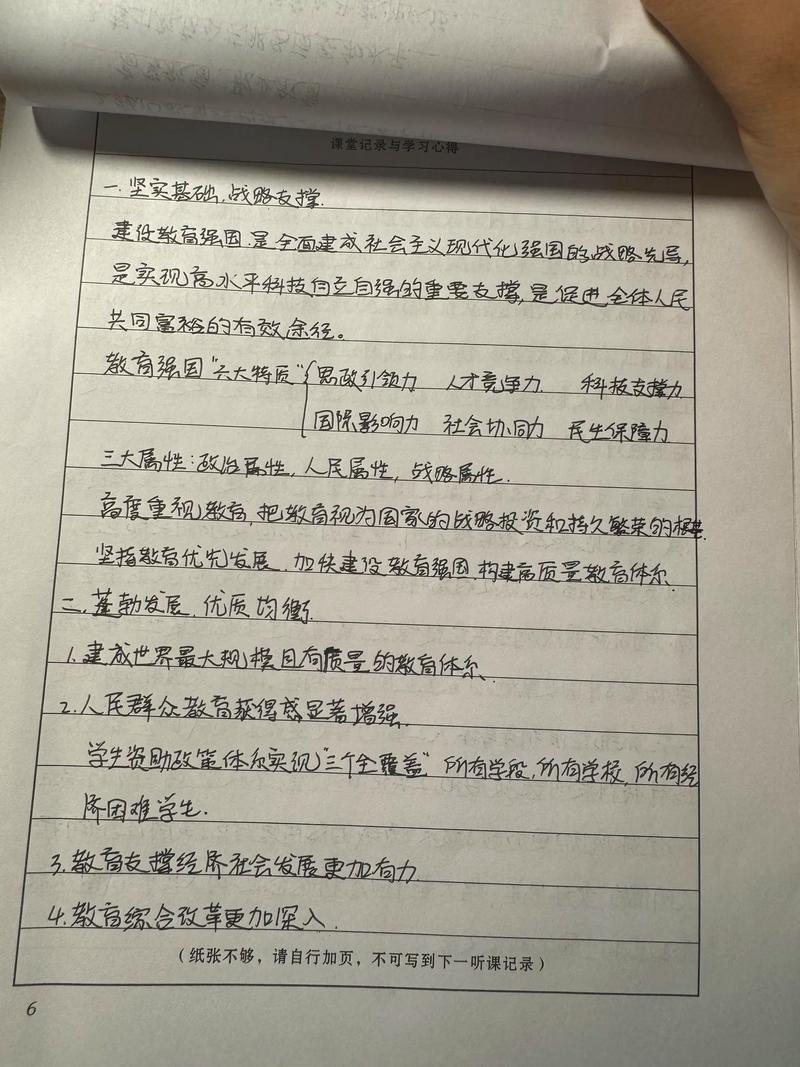 课堂记录与学习心得
一.坚实基础,战略支撑.
建设教育强国是全面建成社会主义现代化强国的战略先导,
是实现高水平科技自立自强的重要支撑,是促进全体人民
共同富裕的有效途径。
教育强国"六大特质" 思政引领力 人才竞争力 科技支撑力
国际影响力 社会协同力 民生保障力
三大属性:政治属性,人民属性,战略属性.
高度重视教育,把教育视为国家的战略投资和持久繁荣的根基.
坚指教育优先发展.加快建设教育强国.构建高质量教育体系.
二.蓬勃发展.优质均衡.
1.建成世界最大规模且有质量的教育体系.
2.人民群众教育获得感显著增强.
学生资助政策体系实现"三个全覆盖" 所有学段,所有学校,所有经
济困难学生.
3.教育支撑经济社会发展更加有力.
4.教育综合改革更加深入.
(纸张不够,请自行加页,不可写到下一听课记录)
6